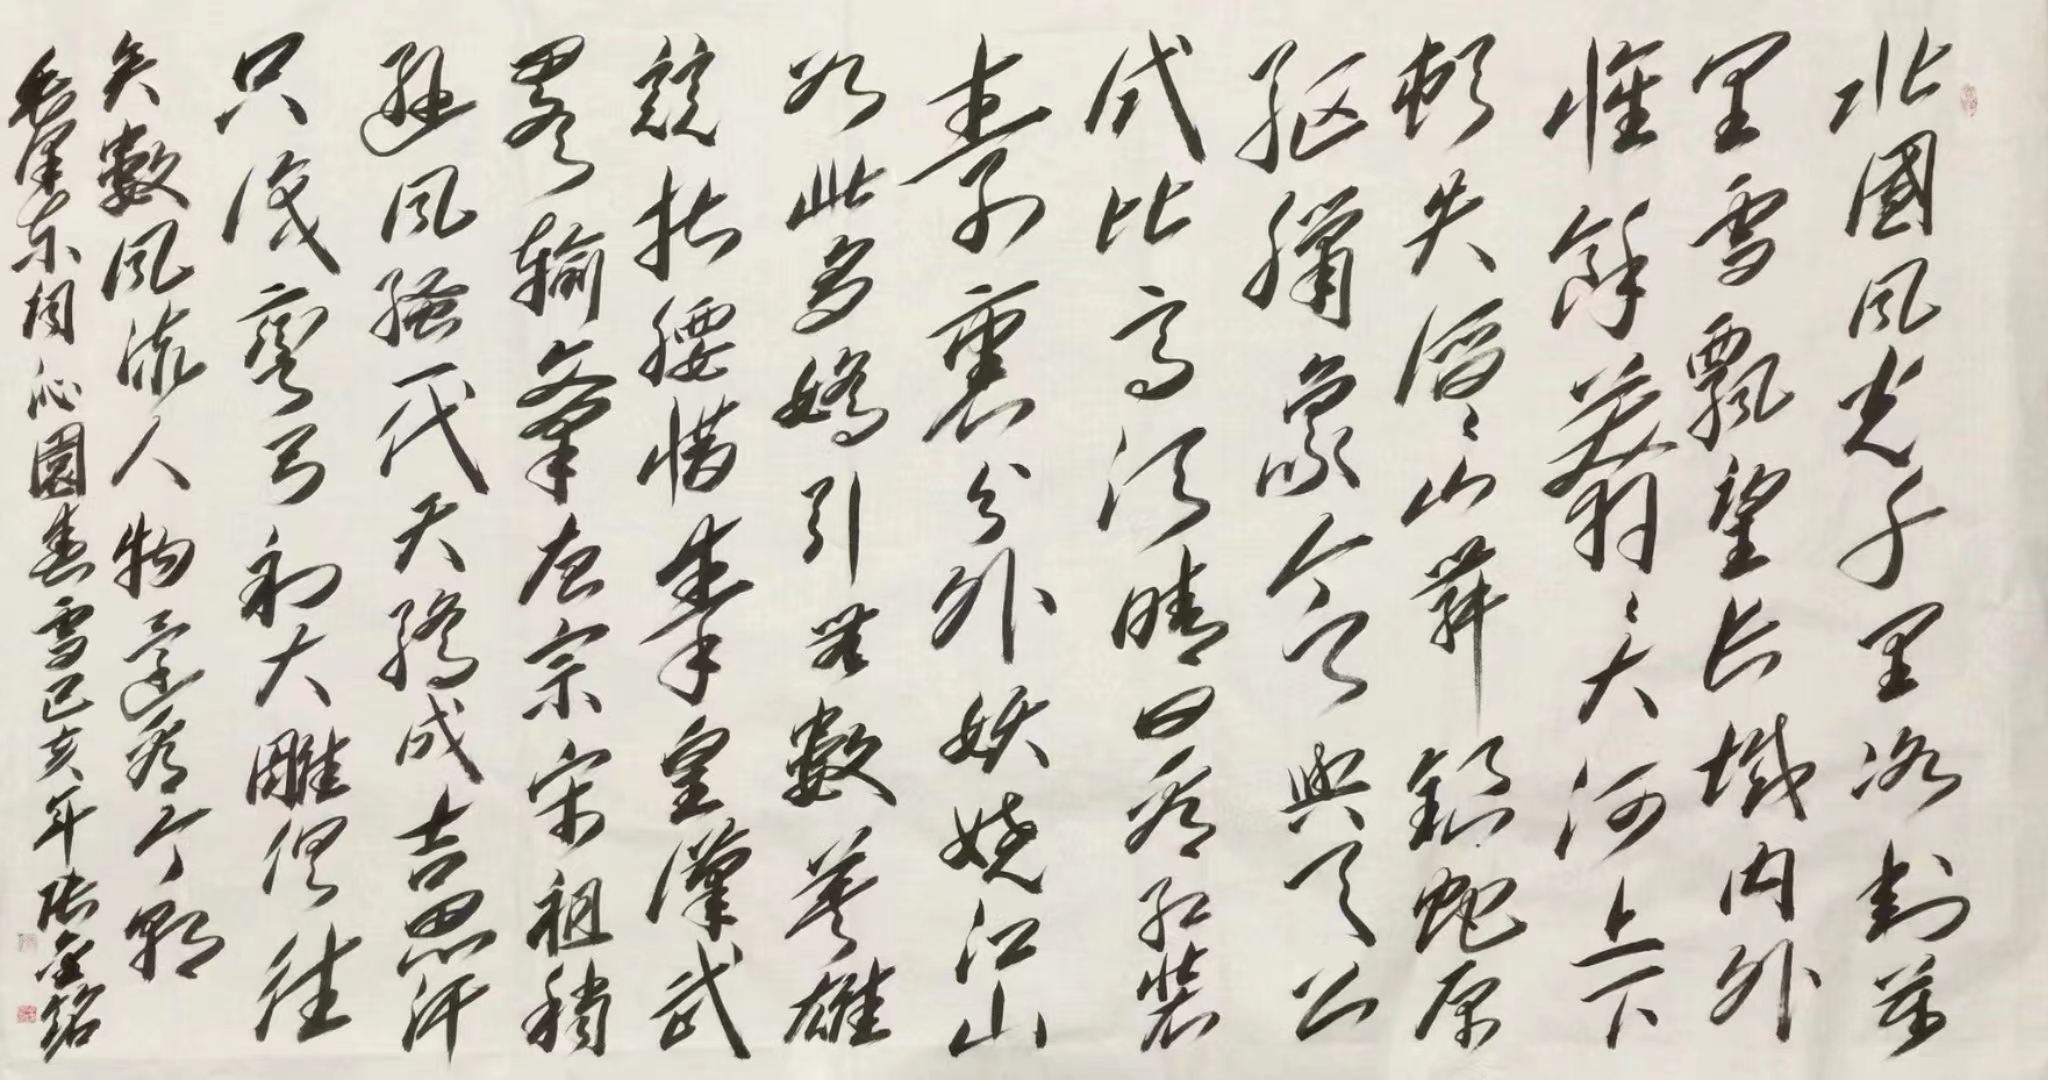 北國風光千里冰封萬
里雪飄望長城内外
惟餘莽〻大河上下
頓失滔〻山舞銀蛇原
驅臘象欲與天公
試比高須晴日看紅裝
素裹分外妖嬈江山
如此多嬌引無數英雄
競折腰惜秦皇漢武
略輸文采唐宗宋祖稍
遜風騷一代天驕成吉思汗
只識彎弓射大雕俱往
矣數風流人物還看今朝
毛澤東詞沁園春雪己亥年張金銘